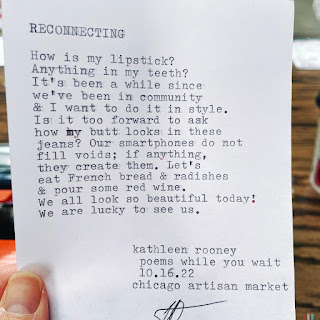 RECONNECTING
How is my lipstick?
Anything in my teeth?
It's been a while since
we've been in community
& I want to do it in style.
Is it too forward to ask
how my butt looks in these
jeans? Our smartphones do not
fill voids; if anything,
they create them. Let's
eat French bread & radishes
& pour some red wine.
We all look so beautiful today!
We are lucky to see us.
kathleen rooney
poems while you wait
10.16.22
chicago artisan market